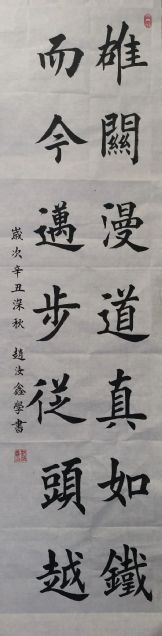 雄關漫道真如鐵
而今邁步從頭越
歲次辛丑深秋 趙汝鑫學書